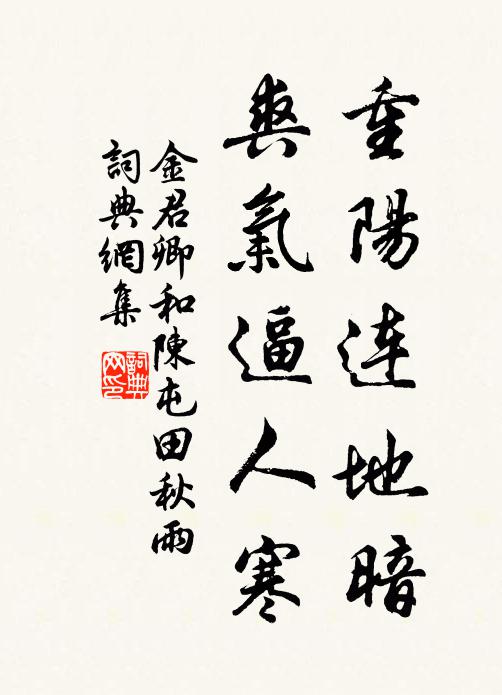 重陽連地暗
爽氣逼人寒
金君卿和陳屯田秋雨
詞典網集
詞典網印